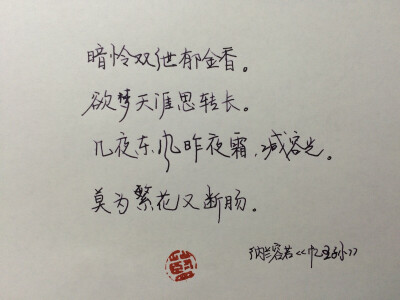 暗怜双绁郁金香。
欲梦天涯思转长。
几夜东风昨夜霜,减容光。
莫为繁花又断肠。
纳兰容若《忆王孙》